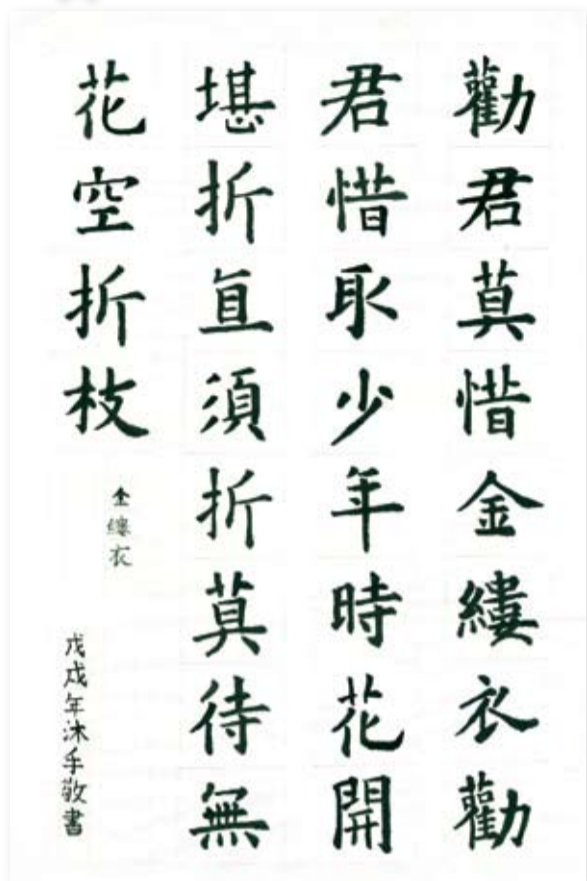 勸君莫惜金縷衣勸
君惜取少年時花開
堪折直須折莫待無
花空折枝
金縷衣
戊戌年沐手敬書